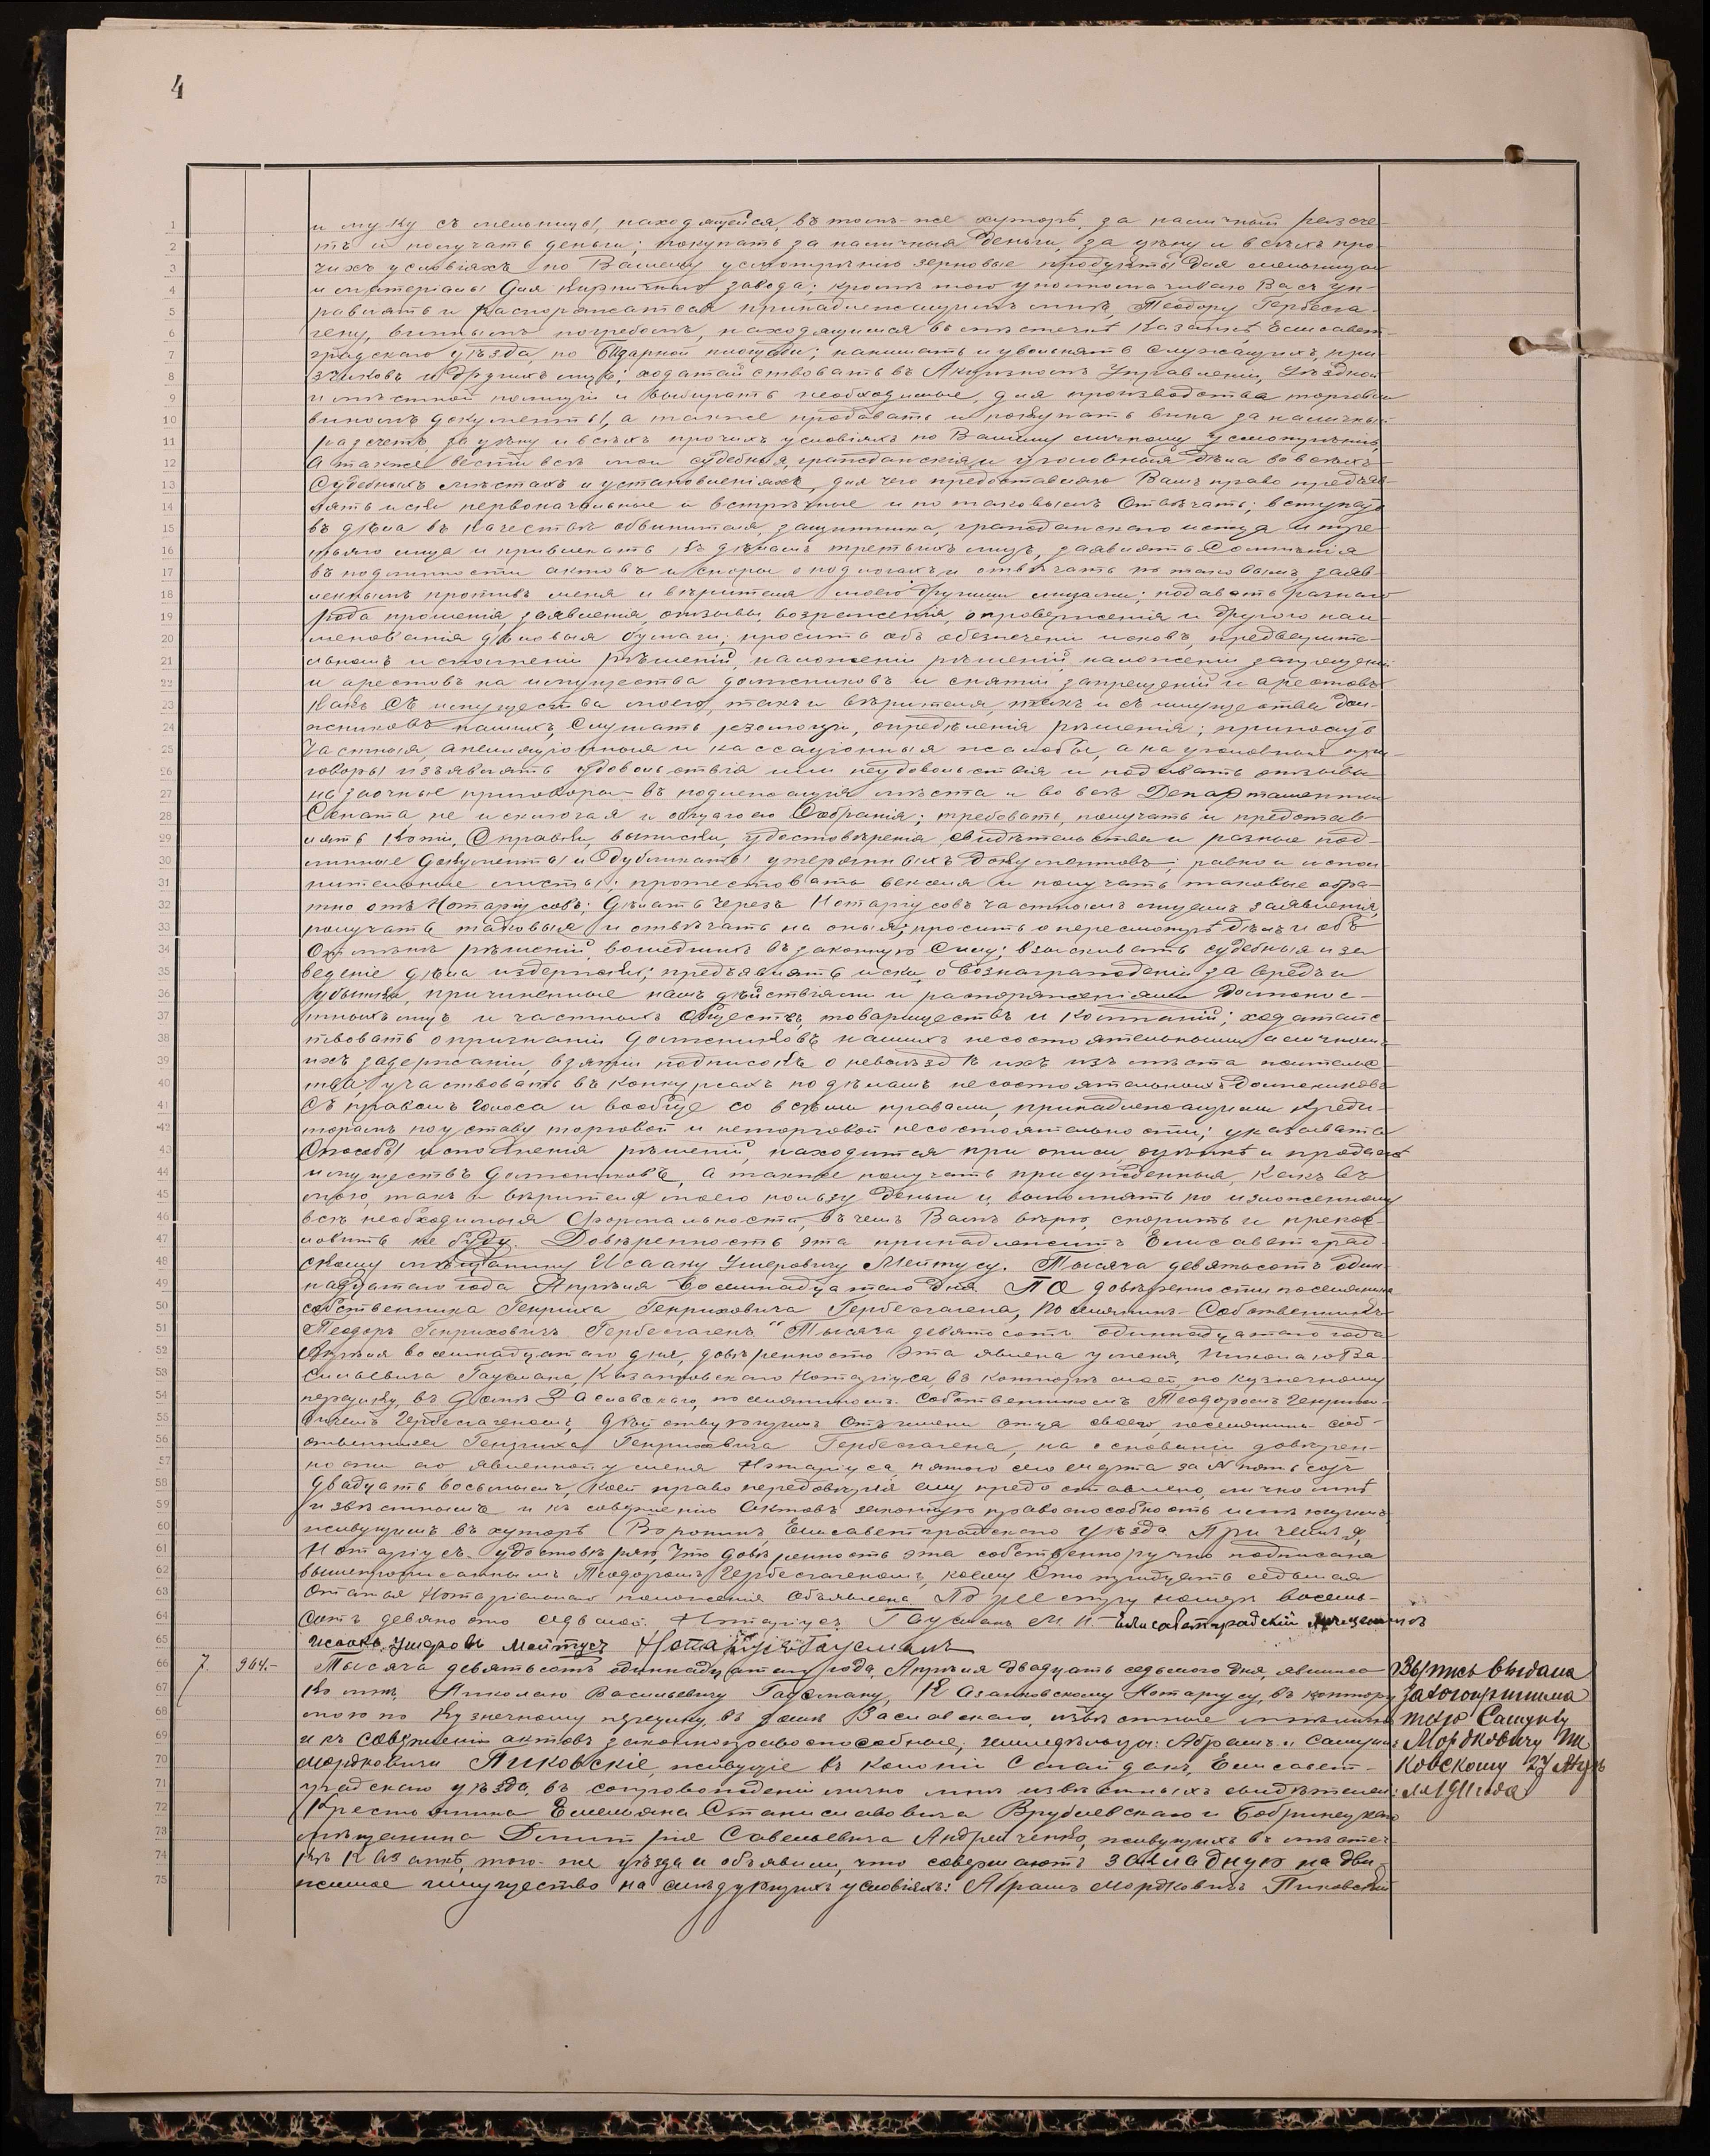 4
1 и муку съ мельницы, находящейся въ томъ-же хуторѣ, за наличный разсче-
2 тъ и получать деньги; покупать за наличныя деньги, за цѣну и всѣхъ про-
3 чихъ условіяхъ по Вашему усмотрѣнію зерновые продукты для мельницы
4 и матеріалы для кирпичнаго завода; кромѣ того уполномачиваю Васъ уп-
5 равлять и распоряжаться принадлежащимъ мнѣ, Теодору Гербсга-
6 гену, виннымъ погребомъ, находящимся въ мѣстечкѣ Казанкѣ, Елисавет-
7 градскаго уѣзда по Базарной площади; нанимать и увольнять служащихъ, при
8 зчиковъ и другихъ лицъ; ходатайствовать въ Акцизномъ Управленіи, Уѣздной
9 и мѣстной полиціи и выбирать необходимые, для производства торговли
10 виномъ документы, а также продавать и покупать вина за наличный
11 разсчетъ за цѣну и всѣхъ прочихъ условіяхъ по Вашему личному усмотрѣнію,
12 а также вести всѣ мои судебныя, гражданскія и уголовныя дѣла во всѣхъ
13 судебныхъ мѣстахъ и установленіяхъ, для чего предоставляю Вамъ право предъяв-
14 лять иски первоначальные и встрѣчные и по таковымъ отвѣчать; вступать
15 въ дѣла въ качествѣ обвинителя, защитника, гражданскаго истца и тре-
16 тьяго лица и привлекать къ дѣламъ третьихъ лицъ, заявлять сомнѣнія
17 въ подлинности актовъ и споры о подлогахъ и отвѣчать по таковымъ, заяв-
18 леннымъ противъ меня и вѣрителя моего другими лицами; подавать разнаго
19 рода прошенія, заявленія, отзывы, возраженія, опроверженія и другого наи-
20 менованія дѣловыя бумаги; просить объ обезпеченіи исковъ, предварите-
21 льномъ исполненіи рѣшеній, наложеніи рѣшеній, наложеніи запрещеній
22 и арестовъ на имущества должниковъ и снятіи запрещеній и арестовъ
23 какъ съ имущества моего, такъ и вѣрителя, такъ и съ имущества дол-
24 жниковъ нашихъ, слушать резолюціи, опредѣленія рѣшенія; приносить
25 частныя, апелляціонныя и кассаціонныя жалобы, а на уголовныя при-
26 говоры изъявлять удовольствія или неудовольствія и подавать отзывы
27 на заочные приговоры въ подлежащія мѣста и во всѣ Департаменты
28 Сената, не исключая и общаго его Собранія; требовать, получать и представ-
29 лять копіи, справки, выписки, удостовѣренія, свидѣтельства и разные под-
30 линные документы и дубликаты утерянныхъ документовъ; равно и испол-
31 нительные листы; протестовать векселя и получать таковые обра-
32 тно отъ Нотаріусовъ; дѣлать черезъ Нотаріусовъ частнымъ лицамъ заявленія,
33 получать таковыя и отвѣчать на оныя; просить о пересмотрѣ дѣлъ и объ
34 отмѣнѣ рѣшеній, вошедшихъ въ законную силу; взыскивать судебныя и за
35 веденіе дѣла издержки; предъявлять иски о вознагражденіи за вредъ и
36 убытки, причиненные намъ дѣйствіями и распоряженіями должнос-
37 тныхъ лицъ и частныхъ обществъ, товариществъ и Компаній; ходатайс-
38 твовать о признаніи должниковъ нашихъ несостоятельными и личном
39 ихъ задержаніи, взятіи подписокъ о невыѣздѣ ихъ изъ мѣста жительс-
40 тва, участвовать въ конкурсахъ по дѣламъ несостоятельныхъ должниковъ
41 съ правомъ голоса и вообще со всѣми правами, принадлежащими креди-
42 торамъ по уставу торговой и неторговой несостоятельности; указывать
43 способы исполненія рѣшеній, находиться при описи, оцѣнкѣ и продажѣ
44 имуществъ должниковъ, а также получать присужденныя, какъ въ
45 мою, такъ и вѣрителя моего пользу деньги и, выполнять по изложенному
46 всѣ необходимыя формальности, въ чемъ Вамъ вѣрю, спорить и прекос-
47 ловить не буду. Довѣренность эта принадлежитъ Елисаветград-
48 скому мѣщанину Исааку Умеровичу Мейтусу. Тысяча девятьсотъ один-
49 надцатаго года Апрѣля восемнадцатаго дня. ПО довѣренности поселянина
50 собственника Генриха Генриховича Гербсгагена, поселянинъ-Собственникъ
51 Теодоръ Генриховичъ Гербсгагенъ." Тысяча девятьсотъ одиннадцатаго года
52 Апрѣля восемнадцатаго дня, довѣренность эта явлена у меня, Николая Ва-
53 сильевича Гаусмана, Казанковскаго Нотаріуса, въ конторѣ моей, по Кузнечному
54 переулку, въ домѣ Заславскаго, поселяниномъ-Собственникомъ Теодоромъ Генрихо-
55 вичемъ Гербсгагеномъ, дѣйствующимъ отъ имени отца своего, поселянина соб-
56 ственника Генриха Генриховича Гербсгагена, на основаніи довѣрен-
57 ности его явленной у меня Нотаріуса, пятаго сего марта за N пятьсотъ
58 двадцать восьмымъ, коей право передовѣрія ему предоставлено, лично мнѣ
59 извѣстнымъ и къ совершенію актовъ законную правоспособность имѣющимъ
60 живущимъ въ хуторѣ Воронинъ Елисаветградскаго уѣзда. При чемъ я,
61 Нотаріусъ удостовѣряю, что довѣренность эта собственноручно подписана
62 вышеписаннымъ Теодоромъ Гербсгагеномъ, коему сто тридцать седьмая
63 статья Нотаріальнаго положенія объявлена. По реестру номеръ восемь-
64 сотъ девяносто седьмой. Нотаріусъ Гаусманъ М. П. Елисаветградскій мѣщанинъ
65 Исаакъ Умеровъ Мейтусъ Нотаріусъ Гаусманъ
66 7 904.- Тысяча девятьсотъ одиннадцатаго года, Апрѣля двадцать седьмого дня, явились Выпись выдана
67 ко мнѣ, Николаю Васильевичу Гаусману, Казанковскому Нотаріусу, въ контору
68 мою по Кузнечному переулку, въ домѣ Заславскаго, извѣстные мнѣ лично Самуилу
69 и къ совершенію актовъ законноправоспособные, земледѣльцы: Абрамъ и Самуилъ Мордковичу Пи
70 Мордковичи Пиковскіе, живущіе въ колоніи Сагайдакъ, Елисавет- ковскому 27 Апрѣ
71 градскаго уѣзда, въ сопровожденіи лично мнѣ извѣстныхъ свидѣтелей: ля 1911 года
72 Крестьянина Емельяна Станиславовича Врублевскаго и Бобринецкаго
73 мѣщанина Димитрія Савельевича Андрейченко, живущихъ въ мѣстеч-
74 кѣ Казанкѣ, того-же уѣзда и объявили, что совершаютъ закладную на дви-
75 жимое имущество на слѣдующихъ условіяхъ: Абрамъ Мордковичъ Пиковскій